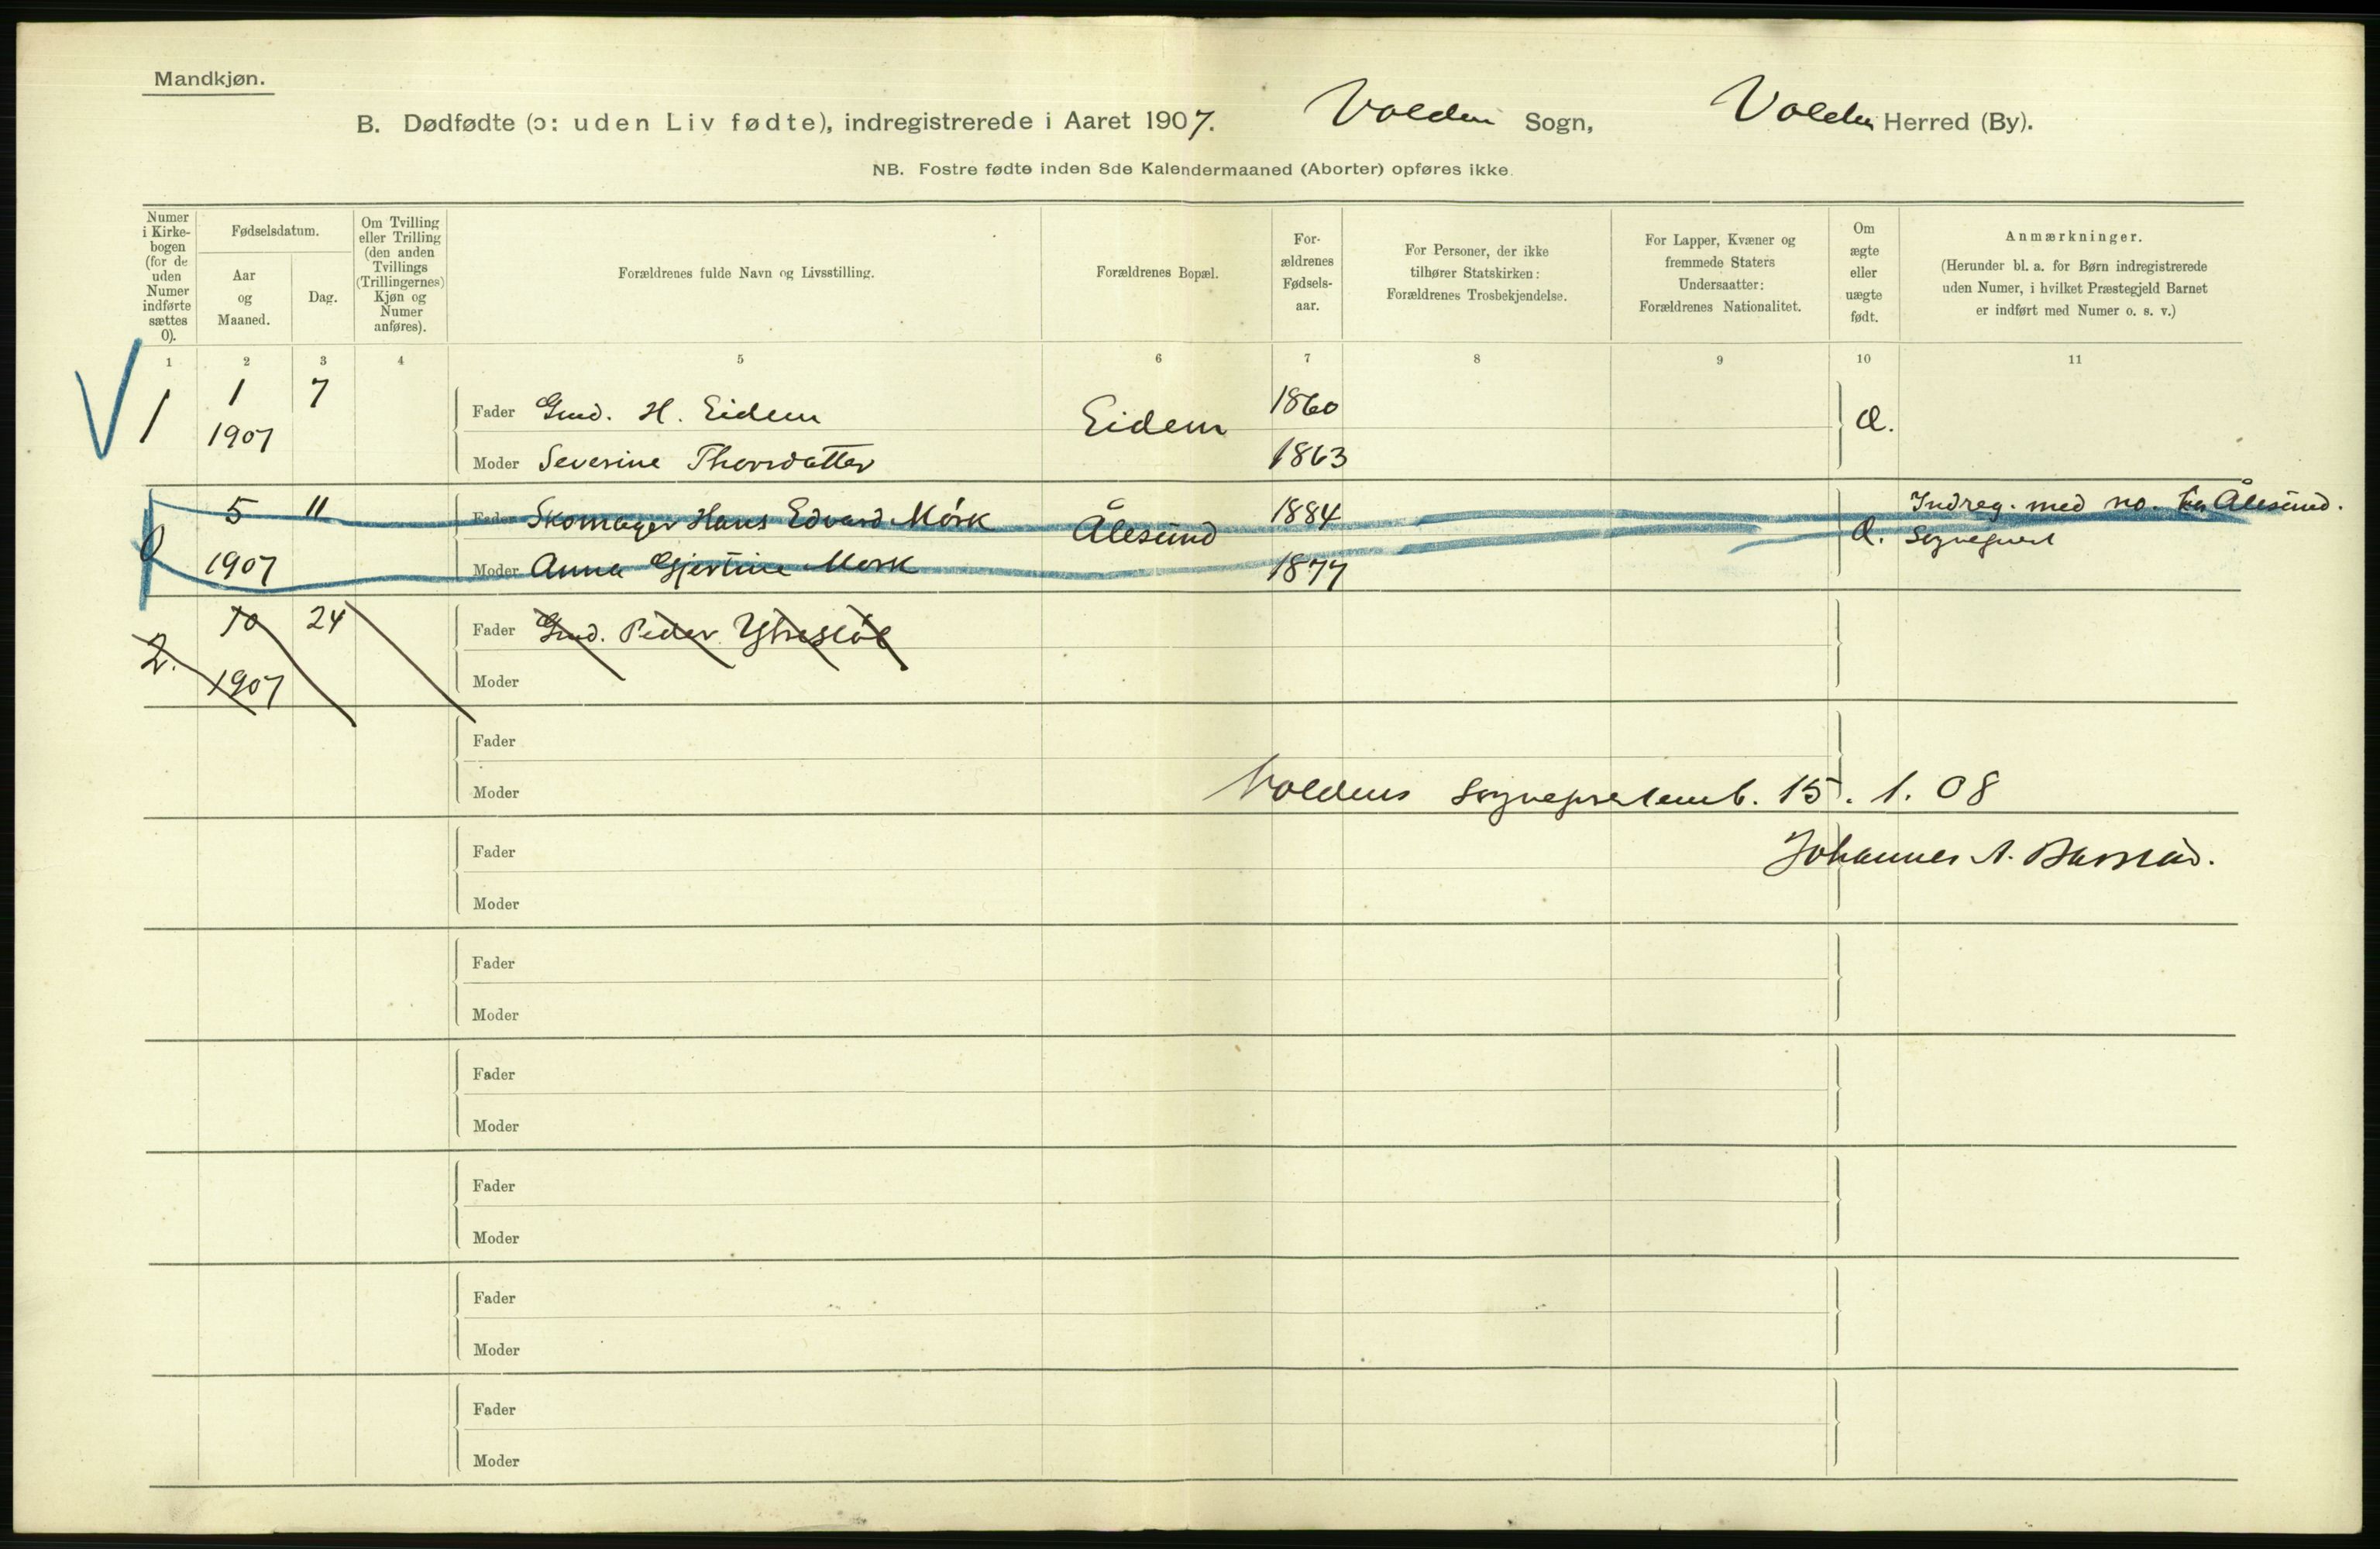 Mandkjøn.
B. Dødfødte (ɔ: uden Liv fødte), indregistrerede i Aaret 1907. Volden Sogn, Volden Herred (By).
NB. Fostre fødte inden 8de Kalendermaaned (Aborter) opføres ikke.
Numer i Kirke-bogen (for de uden Numer indførte sættes 0).
Fødselsdatum.
Aar og Maaned.
Dag.
Om Tvilling eller Trilling (den anden Tvillings (Trillingernes) Kjøn og Numer anføres).
Forældrenes fulde Navn og Livsstilling.
Forældrenes Bopæl.
For-ældrenes Fødsels-aar.
For Personer, der ikke tilhører Statskirken: Forældrenes Trosbekjendelse.
For Lapper, Kvæner og fremmede Staters Undersaatter: Forældrenes Nationalitet.
Om ægte eller uægte født.
Anmærkninger.
(Herunder bl. a. for Børn indregistrerede uden Numer, i hvilket Præstegjeld Barnet er indført med Numer o. s. v.)
1 2 3 4 5 6 7 8 9 10 11
1 1 7 Fader Gmd. H. Eidem Eidem 1860 Æ.
1907 Moder Severine Thorsdatter 1863
0 5 11 Fader Skomager Hans Edvard Mörk Ålesund 1884 Æ. Indreg. med no. Ålesund.
1907 Moder Anna Gjertine Mörk 1877
2. 10 24 Fader Gmd. Peder
1907 Moder
Fader
Moder Voldens Sogneprestemb. 15. 1. 08
Fader Johannes A. Barstad.
Moder
Fader
Moder
Fader
Moder
Fader
Moder
Fader
Moder
Fader
Moder